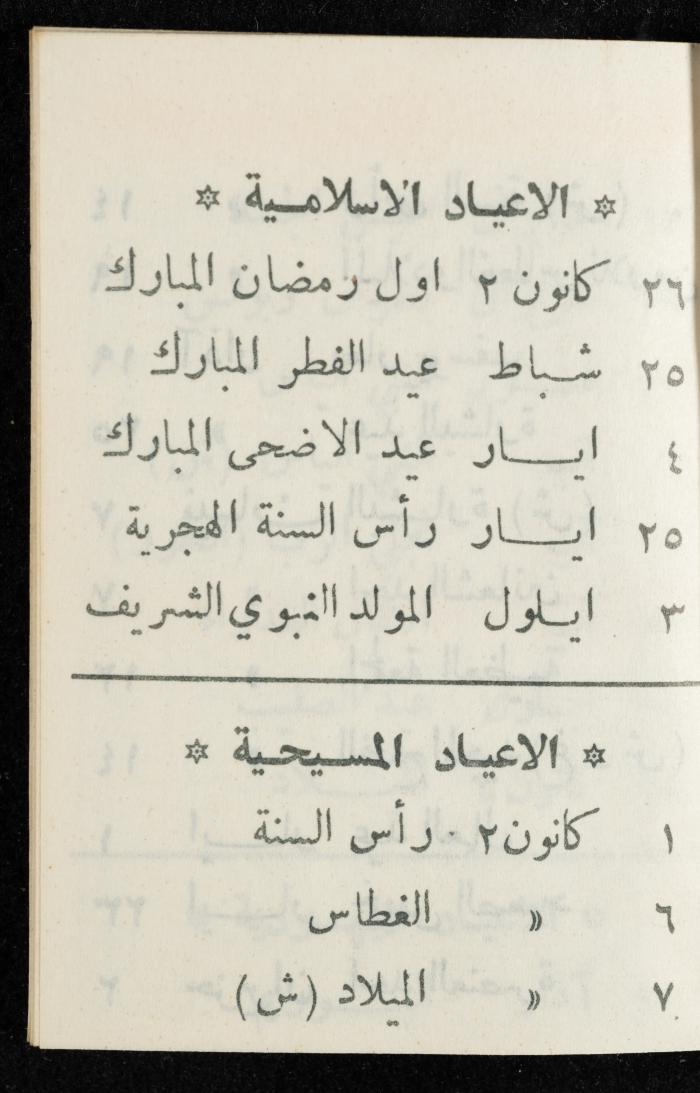 ✡ الاعياد الاسلامية ✡
٢٦ كانون ٢ اول رمضان المبارك
٢٥ شباط عيد الفطر المبارك
٤ ايار عيد الاضحى المبارك
٢٥ ايار رأس السنة الهجرية
٣ ايلول المولد النبوي الشريف
✡ الاعياد المسيحية ✡
١ كانون ٢ رأس السنة
٦ » الغطاس
٧ » الميلاد (ش)